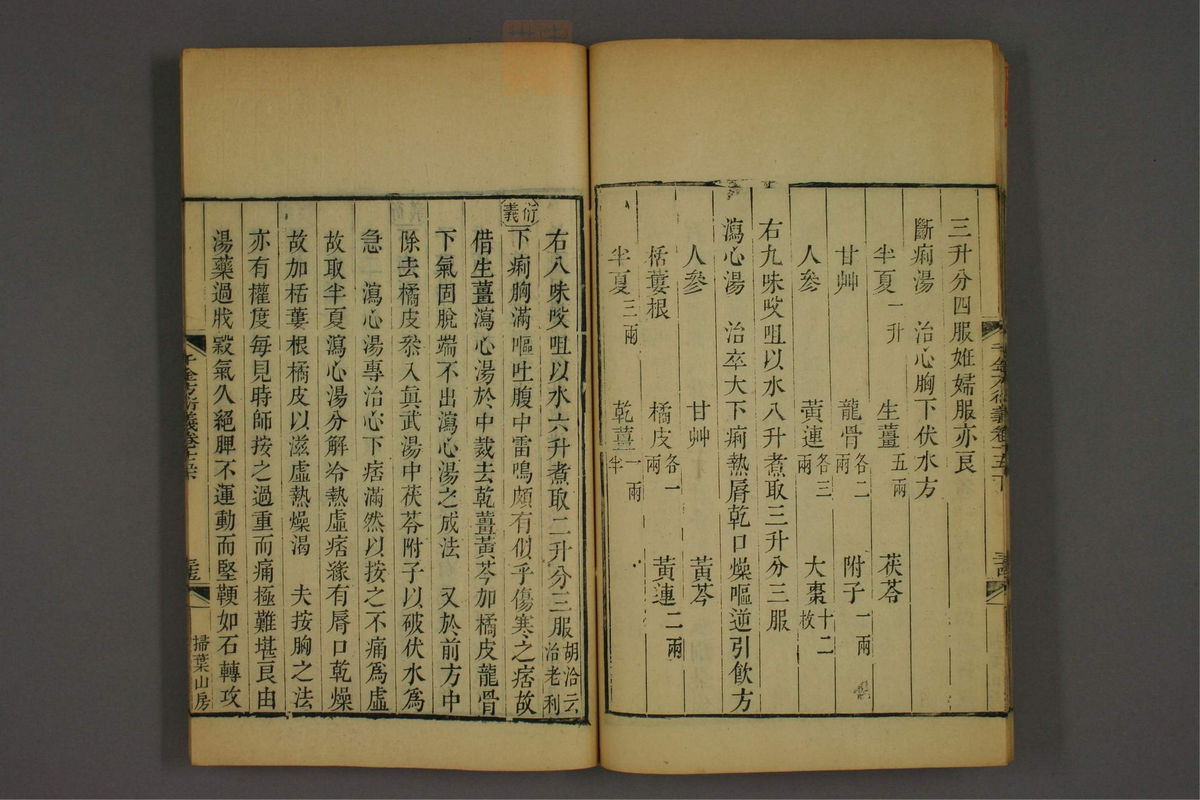 三升分四服妊婦服亦良
斷痢湯　治心胸下伏水方
半夏一升　生薑五兩　茯苓
甘艸　龍骨各二兩　附子一兩
人參　黃連各三兩　大棗十二枚
右九味㕮咀以水八升煮取三升分三服
瀉心湯　治卒大下痢熱脣乾口燥嘔逆引飲方
人參　甘艸　黃芩
栝蔞根　橘皮各一兩　黃連二兩
半夏三兩　乾薑一兩半
右八味㕮咀以水六升煮取二升分三服胡洽云治老利
衍義
下痢胸滿嘔吐腹中雷鳴頗有似乎傷寒之痞故
借生薑瀉心湯於中裁去乾薑黃芩加橘皮龍骨
下氣固脫端不出瀉心湯之成法　又於前方中
除去橘皮叅入眞武湯中茯苓附子以破伏水爲
急　瀉心湯專治心下痞滿然以按之不痛爲虛
故取半夏瀉心湯分解冷熱虛痞緣有脣口乾燥
故加栝蔞根橘皮以滋虛熱燥渴　夫按胸之法
亦有權度每見時師按之過重而痛極難堪良由
湯藥過戕穀氣久絕脾不運動而堅鞕如石轉攻
千金方衍義卷十五
掃葉山房